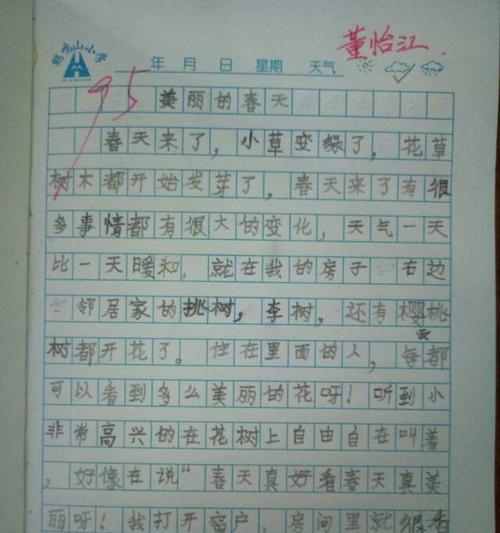 鹤鸣山小学
董怡江.
年 月 日 星期 天气
95
美丽的春天
春天来了，小草变绿了，花草
树木都开始发芽了，春天来了有很
多事情都有很大的变化，天气一天
比一天暖和，就在我的房子右边
邻居家的挑树，李树，还有樱桃
树都开花了。住在里面的人，每天都
可以看到多么美丽的花呀！听到小
非常高兴的在花树上自由自在叫着
，好像在说“春天真好看春天真美
丽呀！我打开窗户，房间里就很香